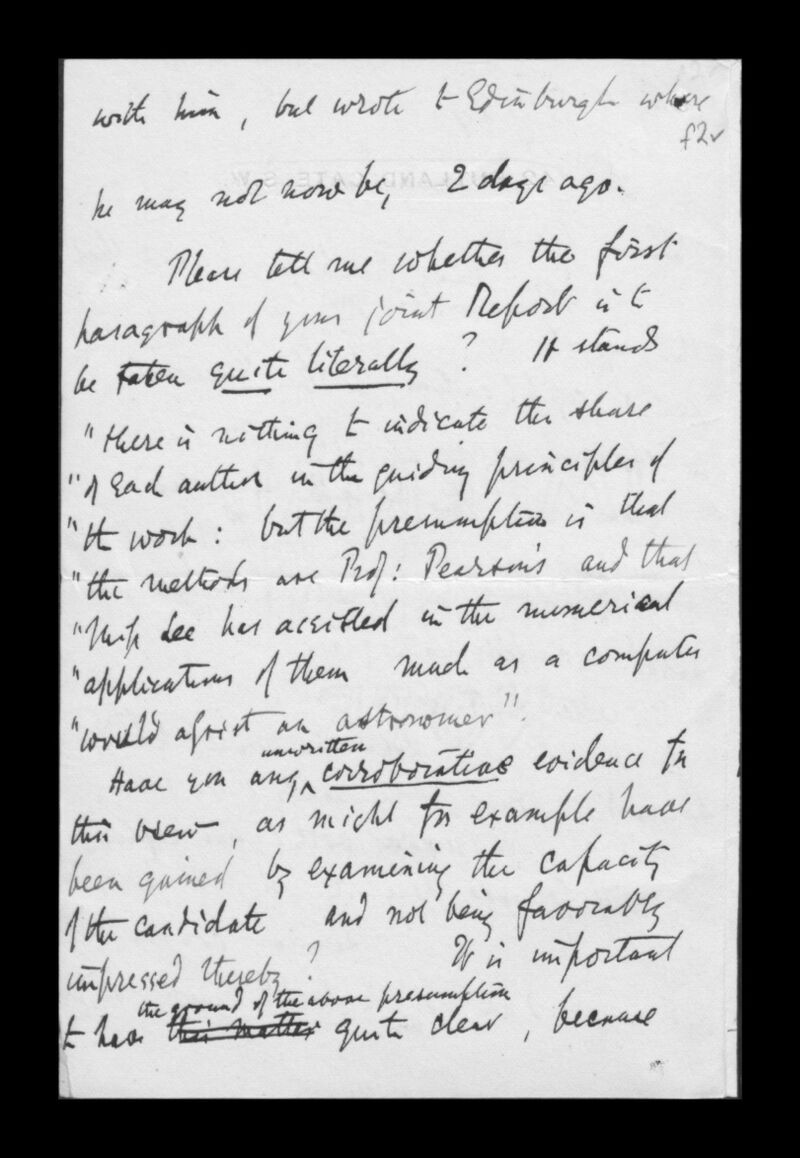 with him, but wrote to Edinburgh where
f2v
he may not now be, 2 days ago.
Please tell me whether the first
paragraph of your joint Report is to
be taken quite literally? It stands
"there is nothing to indicate the share
"of each author in the guiding principles of
"the work: but the presumption is that
"the methods are Prof: Pearson's and that
"Miss Lee has assisted in the numerical
"applications of them much as a computer
"would assist an astronomer".
unwritten
Have you any, corroborative evidence for
this view, as might for example have
been gained by examining the capacity
of the candidate and not being favorably
impressed thereby? It is important
the ground of the above presumption
to have this matter quite clear, because